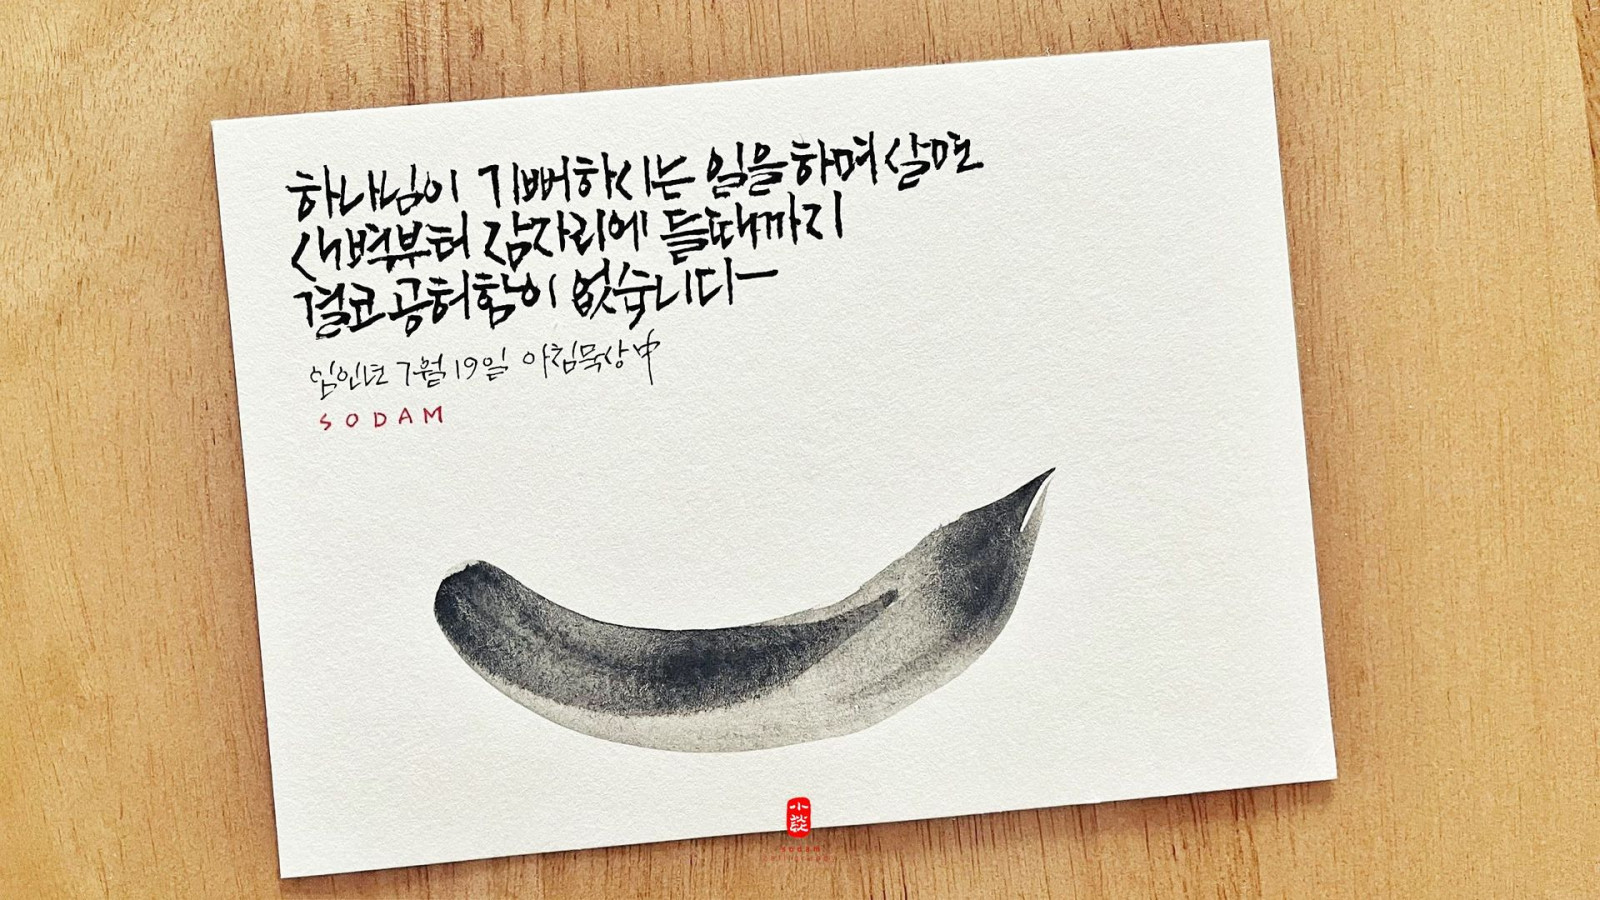 하나님이 기뻐하시는 일을 하며 살면
새벽부터 잠자리에 들때까지
결코 공허함이 없습니다ㅡ
임인년 7월 19일 아침묵상 中
SODAM
小談
sodam
calligraphy